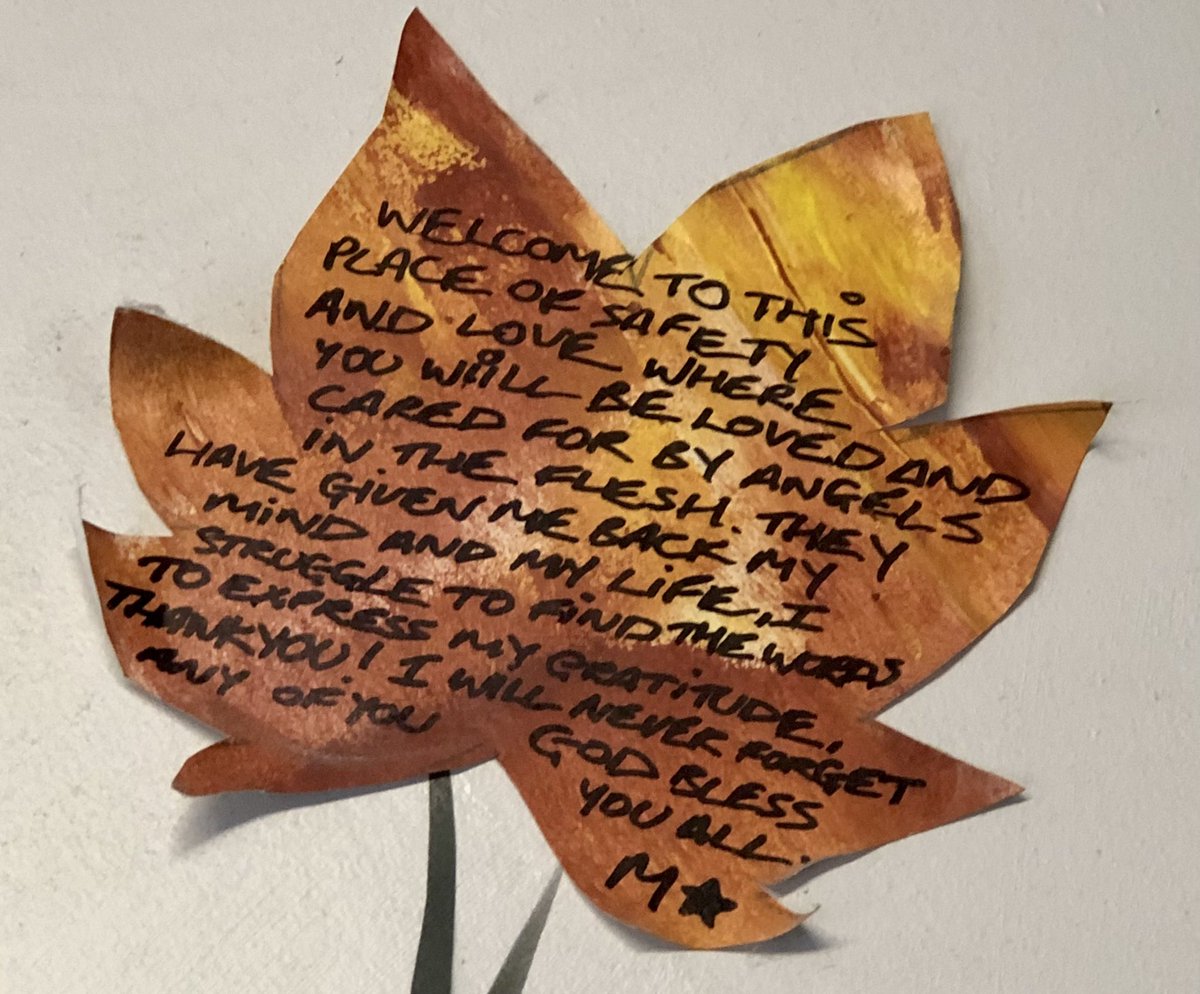 WELCOME TO THIS
PLACE OF SAFETY
AND LOVE WHERE
YOU WILL BE LOVED AND
CARED FOR BY ANGELS
IN THE FLESH. THEY
HAVE GIVEN ME BACK MY
MIND AND MY LIFE. I
STRUGGLE TO FIND THE WORDS
TO EXPRESS MY GRATITUDE.
THANKYOU! I WILL NEVER FORGET
ANY OF YOU
GOD BLESS
YOU ALL.
M★